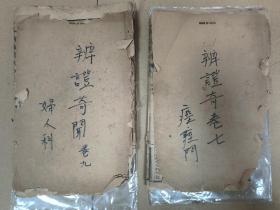 辨證奇聞 卷九
婦人科
辨證奇卷七
痙䮕門